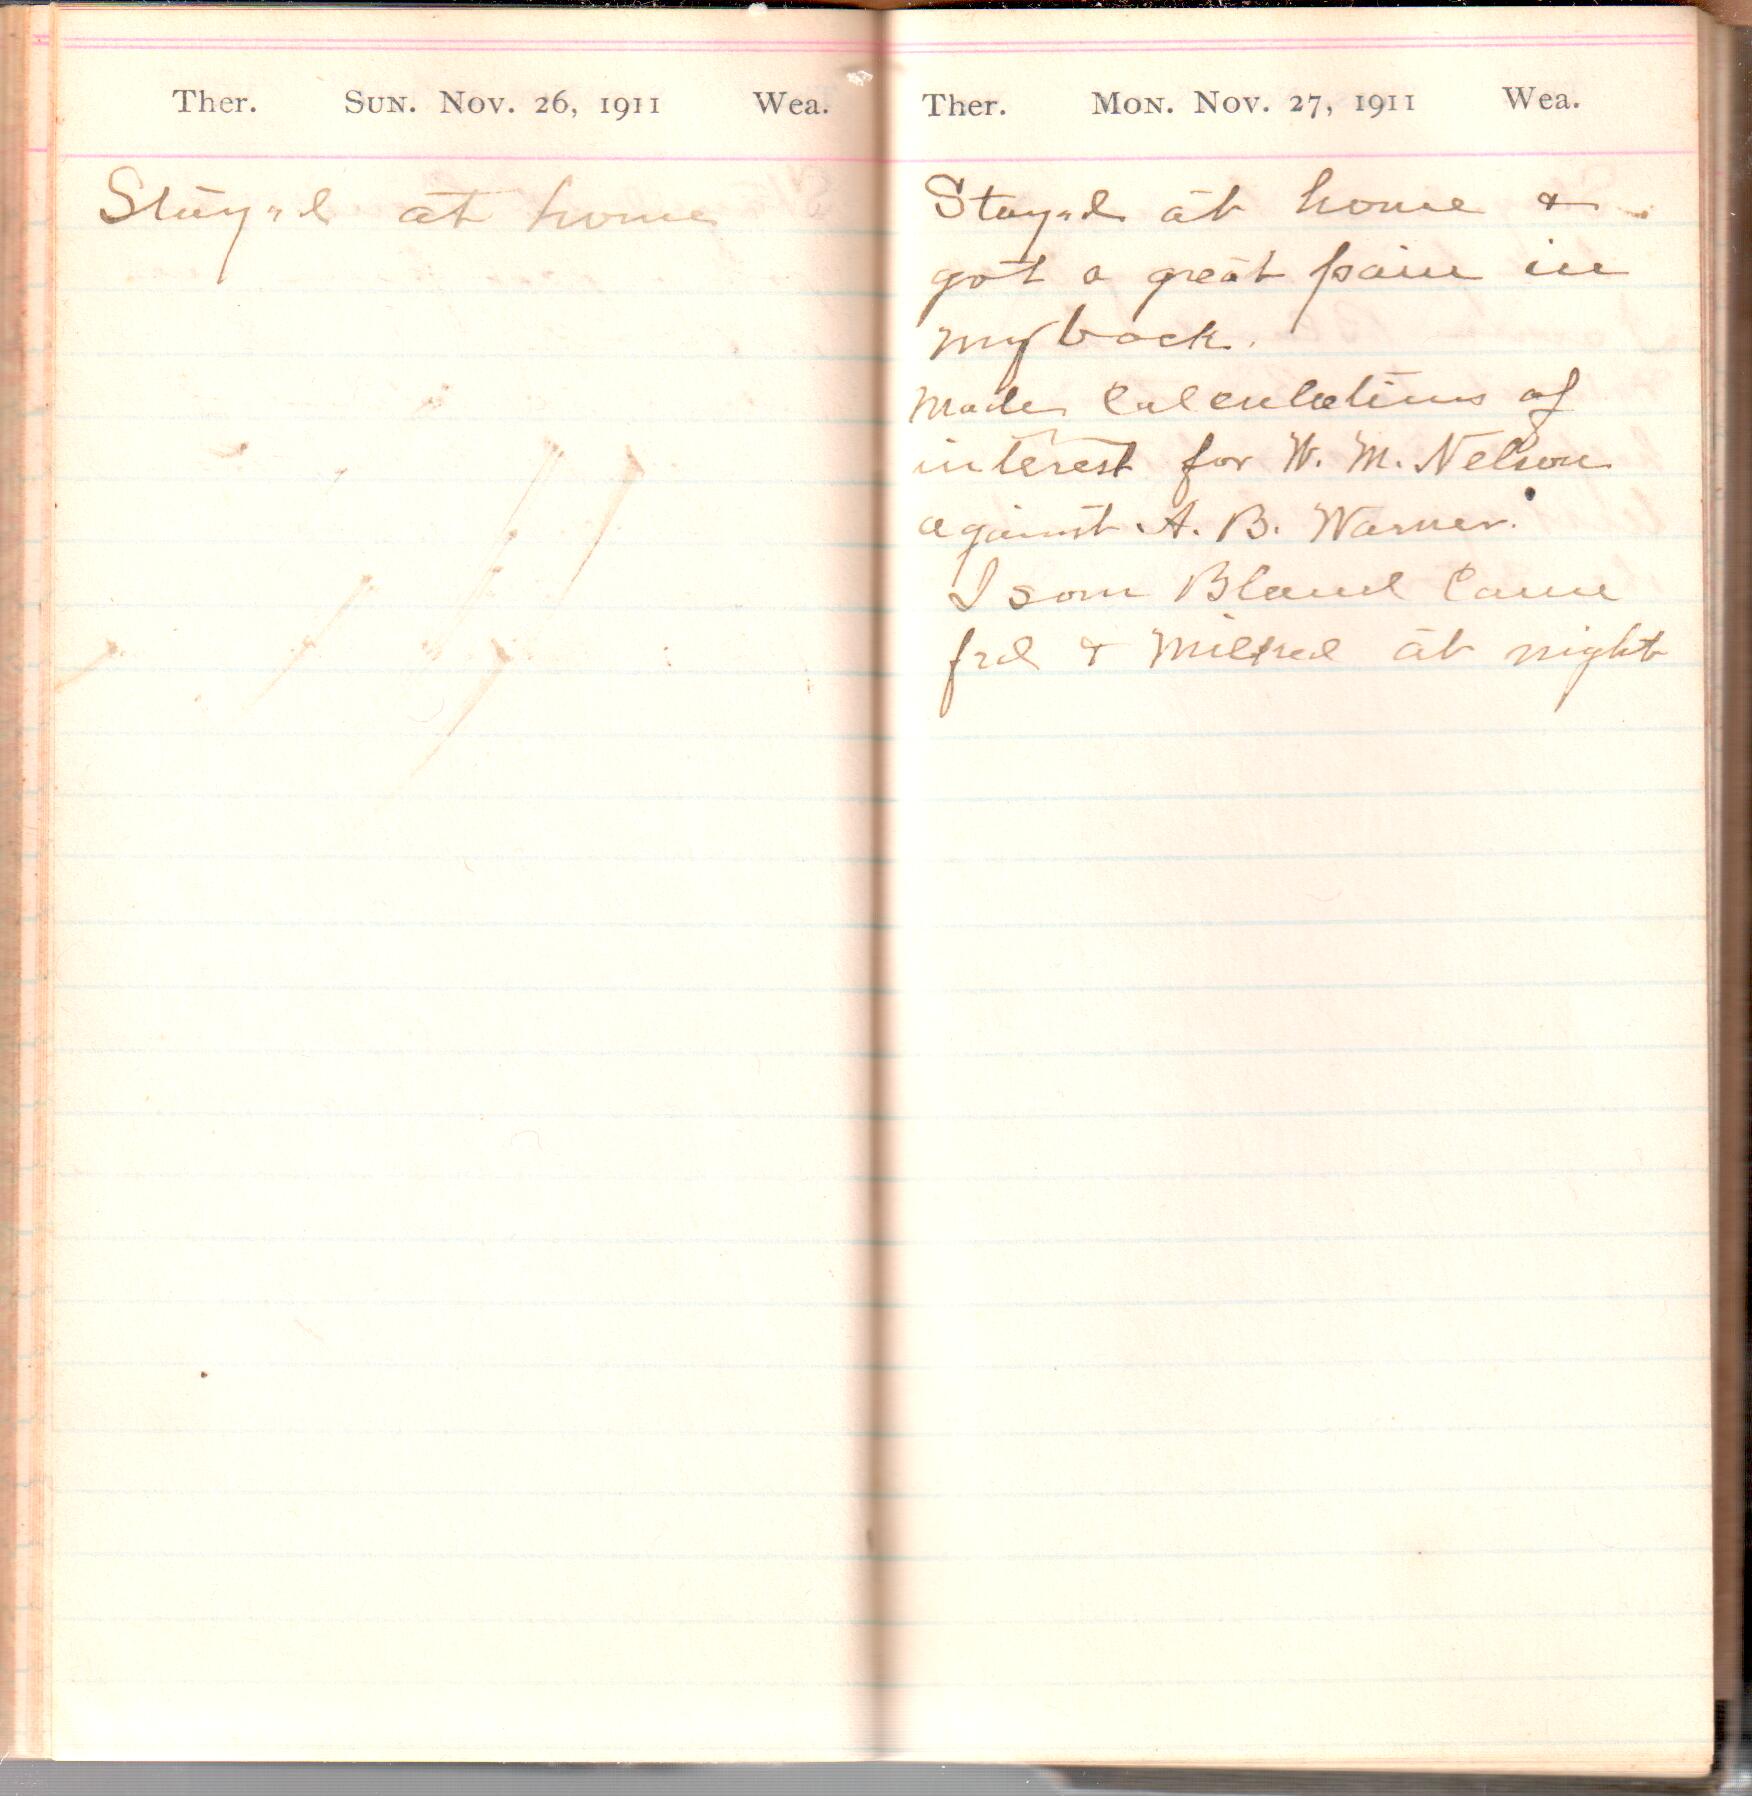 Ther. Sun. Nov. 26, 1911 Wea.
Stayed at home
Ther. Mon. Nov. 27, 1911 Wea.
Stayed at home &
got a great pain in
my back.
Made Calculations of
interest for W. M. Nelson
against A. B. Warner.
Isom Bland Came
frd & Mildred at night